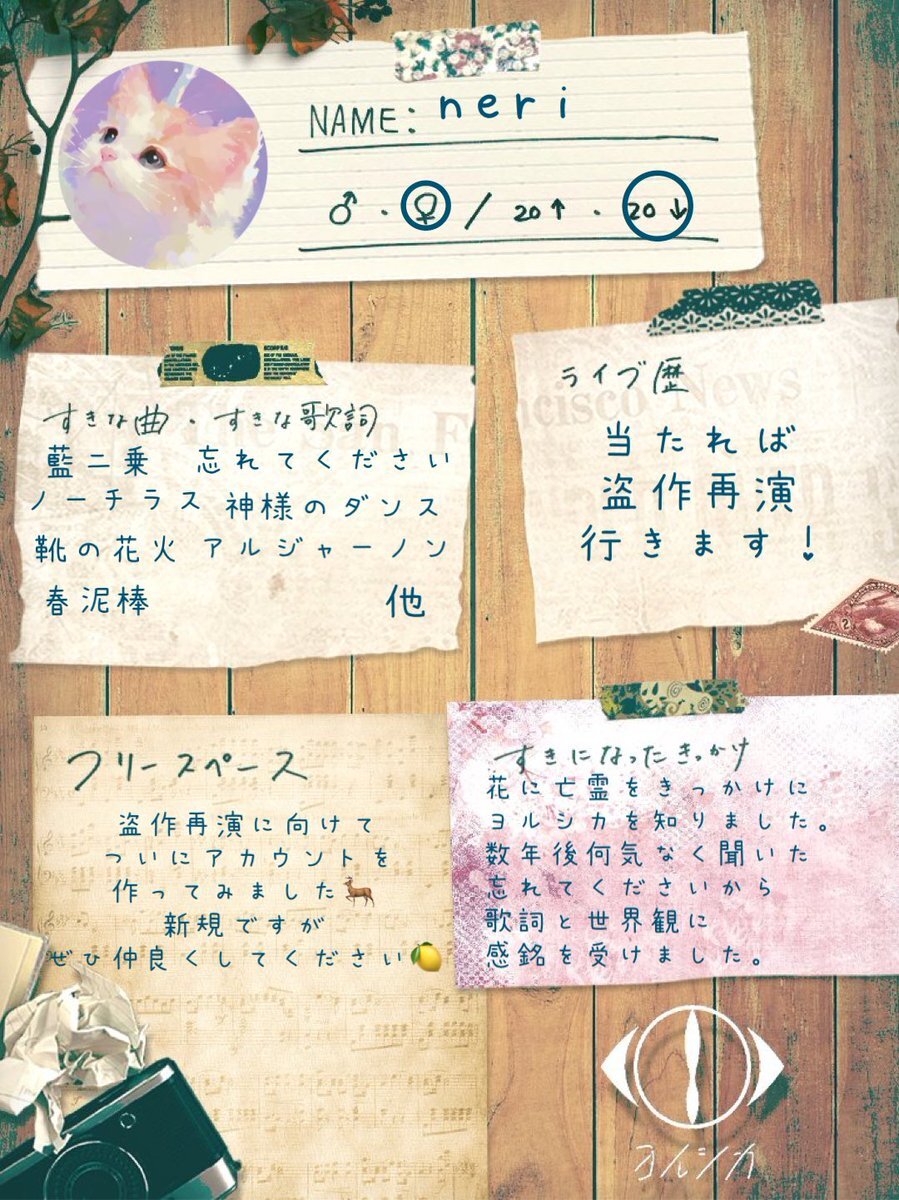 NAME: neri
♂・♀ / 20↑・20↓
すきな曲・すきな歌詞
藍二乗 忘れてください
ノーチラス 神様のダンス
靴の花火 アルジャーノン
春泥棒 他
ライブ歴
当たれば
盗作再演
行きます!
フリースペース
盗作再演に向けて
ついにアカウントを
作ってみました🦌
新規ですが
ぜひ仲良くしてください🍋
すきになったきっかけ
花に亡霊をきっかけに
ヨルシカを知りました。
数年後何気なく聞いた
忘れてくださいから
歌詞と世界観に
感銘を受けました。
ヨルシカ